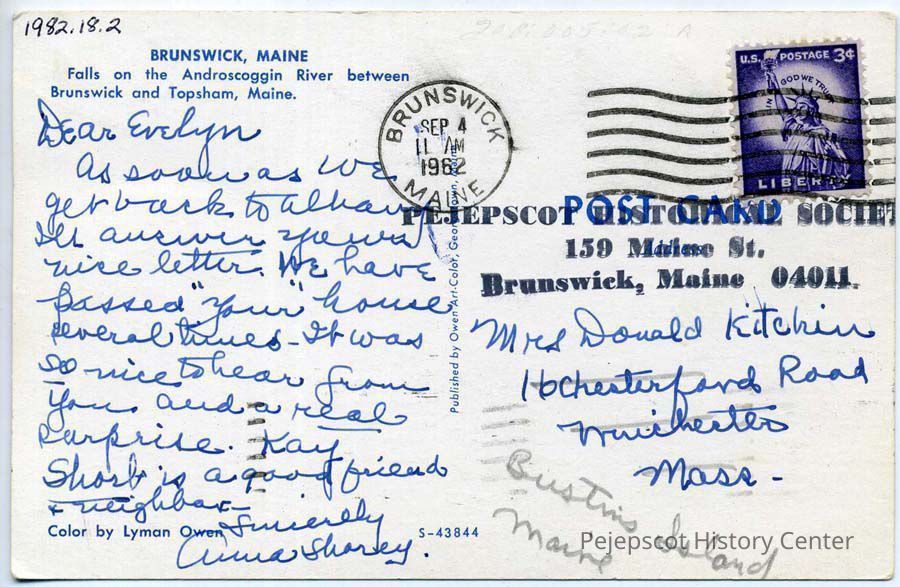 1982.18.2
BRUNSWICK, MAINE
Falls on the Androscoggin River between
Brunswick and Topsham, Maine.
Dear Evelyn
As soon as we
get back to
I'll answer your
nice letter. We have
passed "your" house
several times - It was
so nice to hear from
you, and a real
surprise. Kay
Shorb is a good friend
& neighbor -
Sincerely
Anna Shorey.
Color by Lyman Owen
S-43844
Published by Owen Art-Color,
BRUNSWICK
SEP 4
11 AM
1962
MAINE
U.S. POSTAGE 3¢
IN GOD WE TRUST
LIBERTY
POST CARD
PEJEPSCOT HISTORICAL SOCIET
159 Maine St.
Brunswick, Maine 04011.
Mrs Donald Kitchin
16 Chesterford Road
Winchester
Mass -
Bustins Island
Maine
Pejepscot History Center